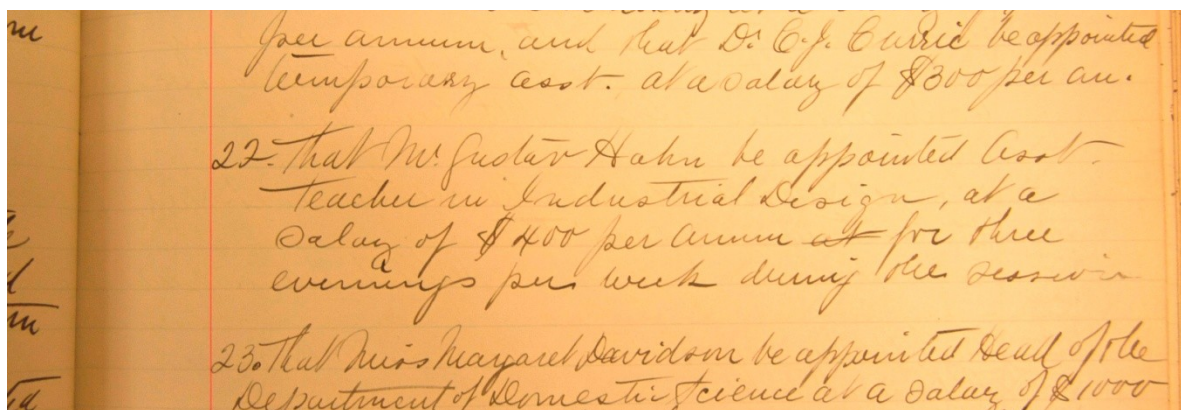 per annum, and that Dr. C. J. Currie be appointed
temporary asst. at a salary of $300 per an.
22. That Mr. Gustav Hahn be appointed Asst.
Teacher in Industrial Design, at a
salary of $400 per annum at for three
evenings per week during the session
23. That Miss Margaret Davidson be appointed Head of the
Department of Domestic Science at a salary of $1000